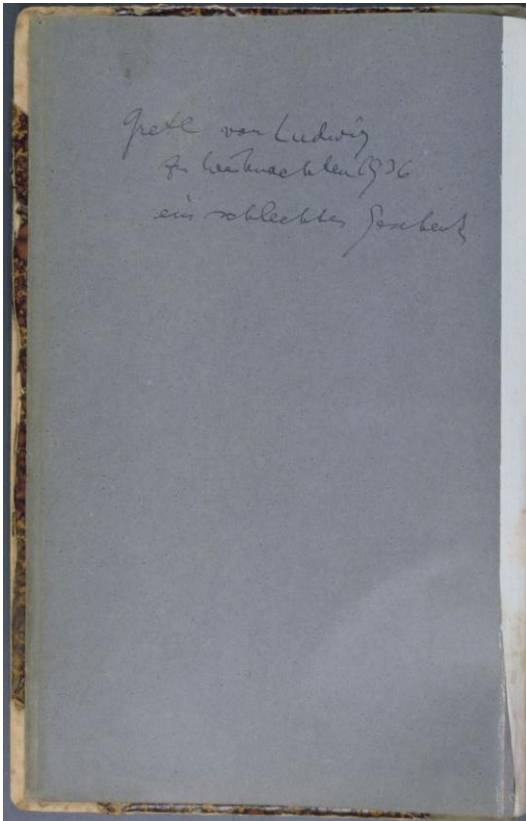 Gretl von Ludwig
zu Weihnachten 1936
ein schlechtes Geschenk